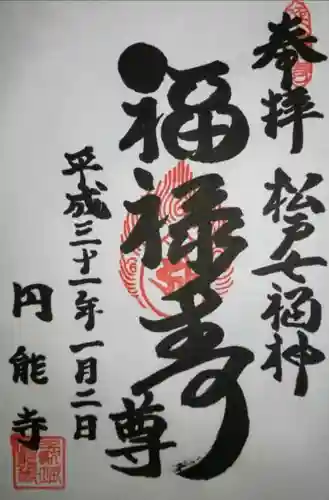 奉拝
松戸七福神
福禄寿
尊
平成三十一年一月二日
円能寺